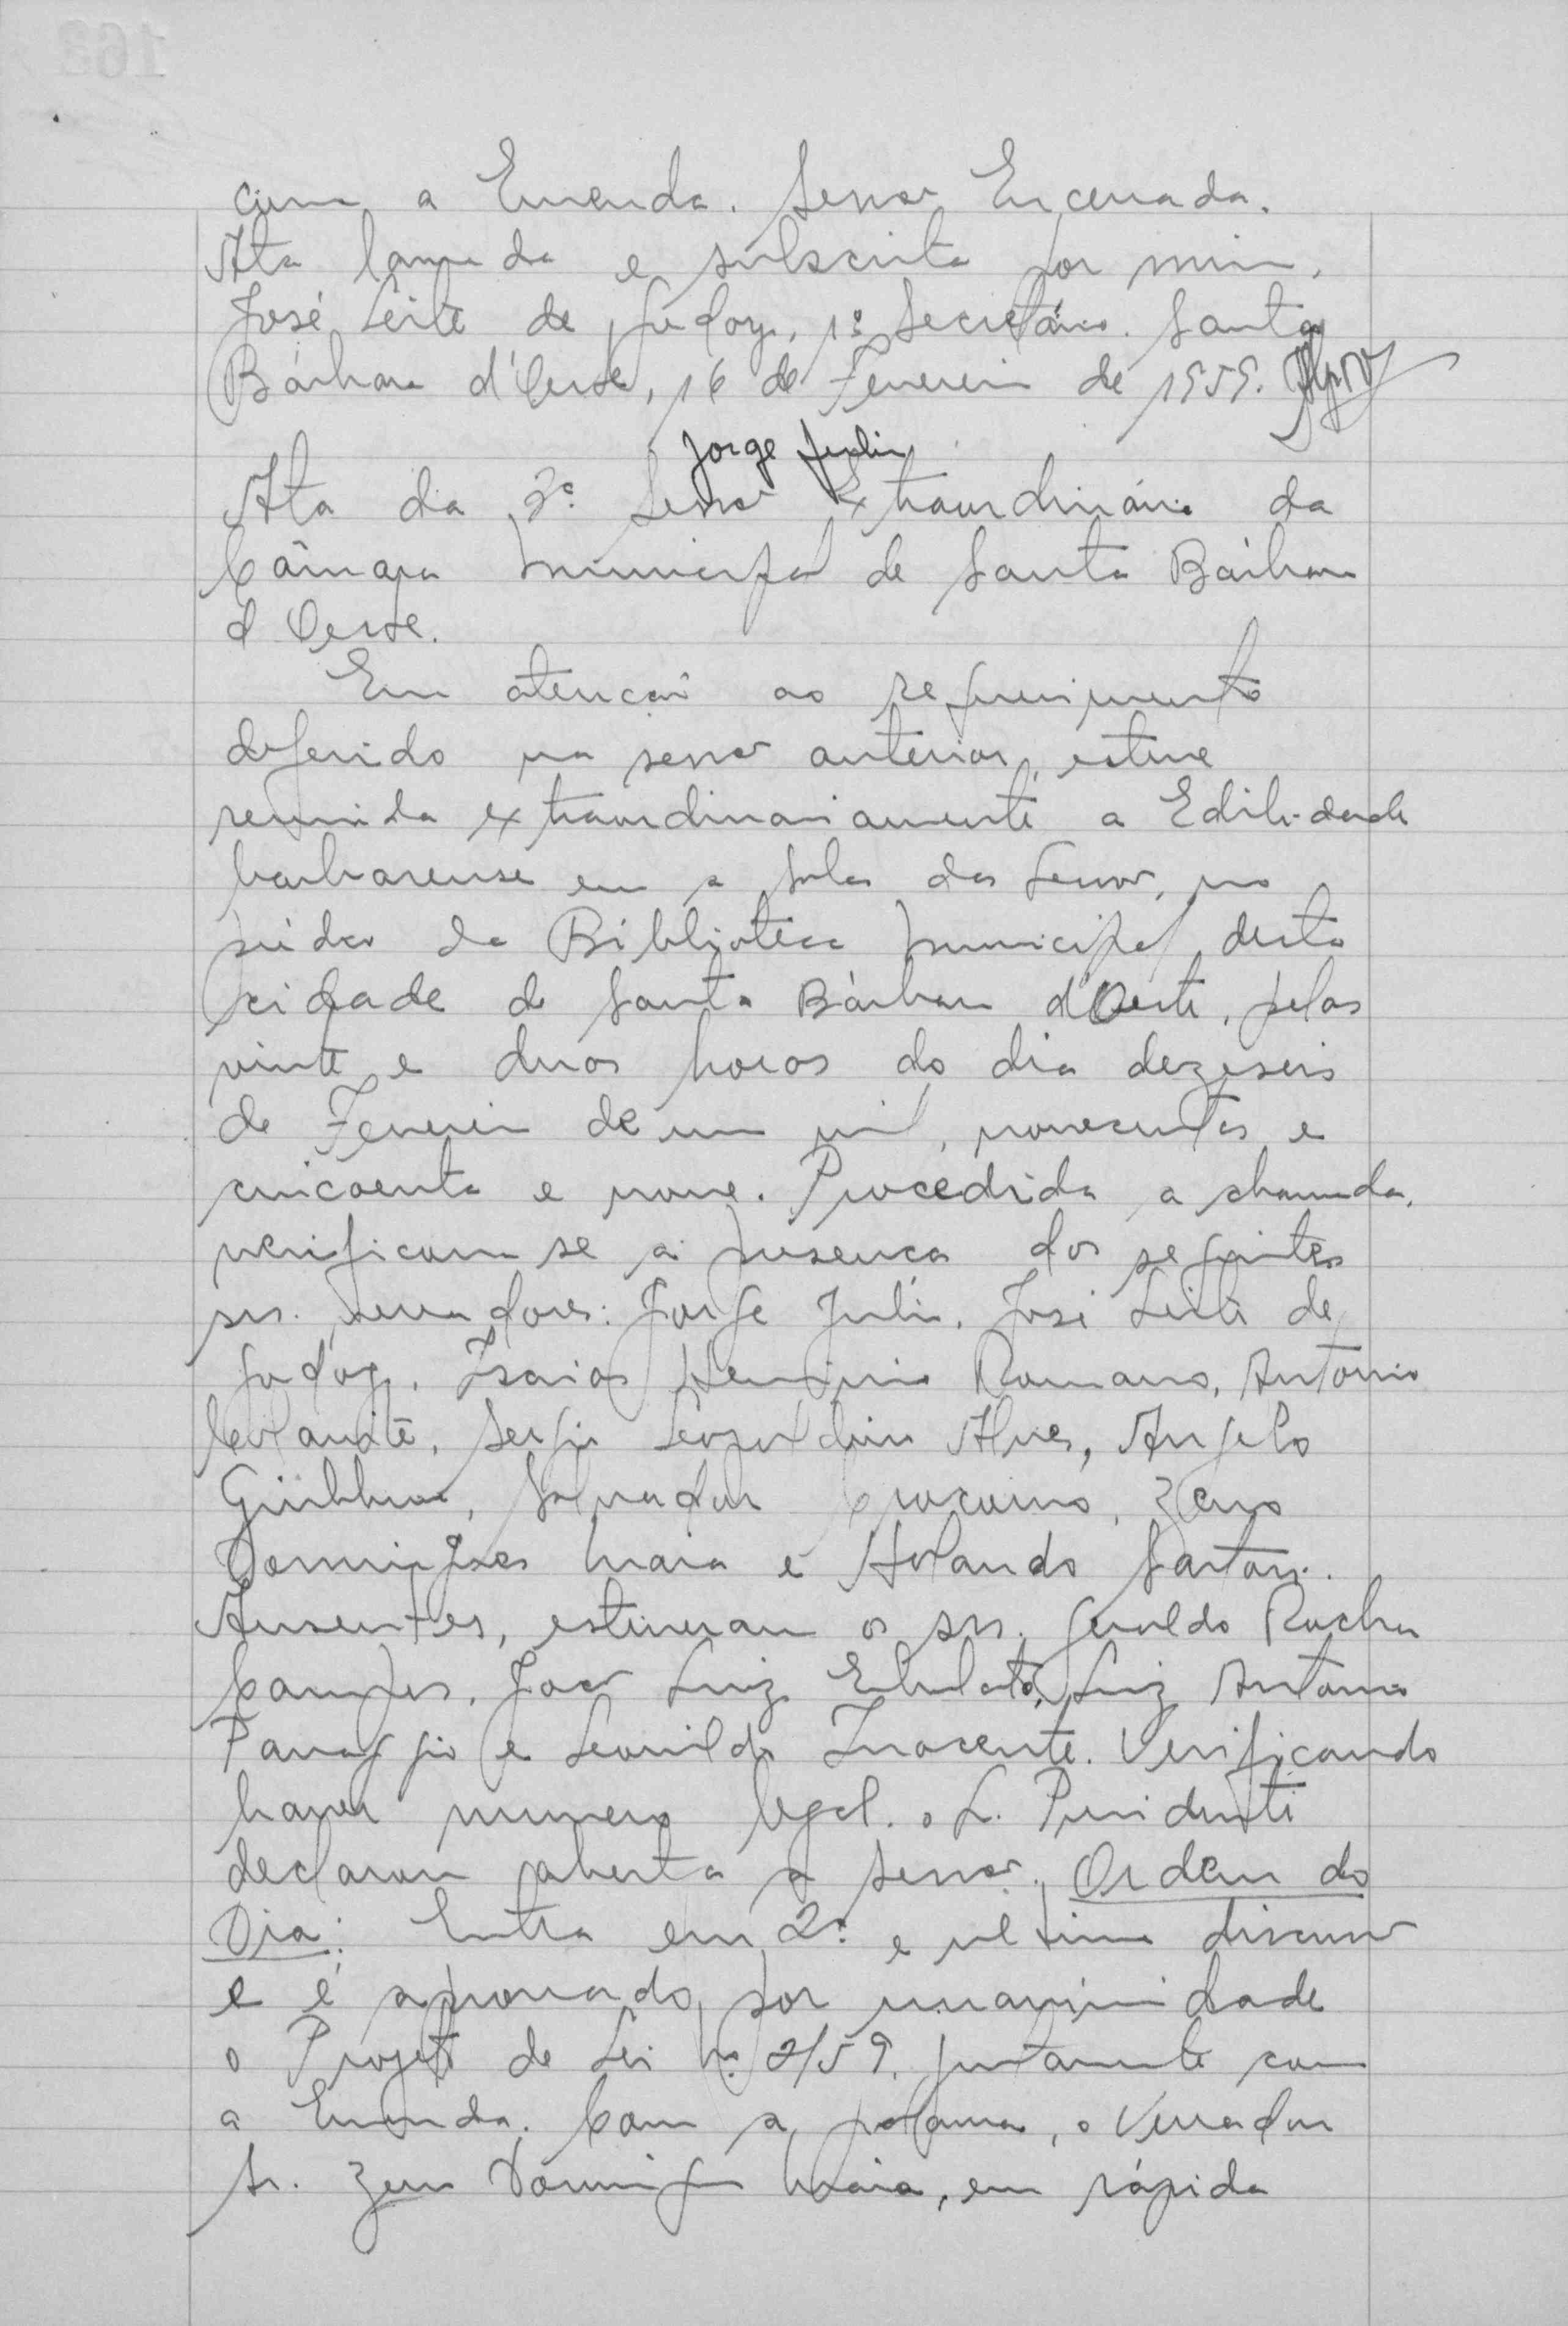 com a Emenda. Sessão Encerrada.
Ata lavrada e subscrita por mim,
José Leite de Godoy, 1º Secretário. Santa
Bárbara d'Oeste, 16 de Fevereiro de 1959.
Jorge Julio
Ata da 2ª Sessão Extraordinária da
Câmara Municipal de Santa Bárbara
d Oeste.
Em atenção ao requerimento
deferido na sessão anterior, esteve
reunida extraordinariamente a Edilidade
barbarense em a sala das Sessões, no
prédio da Biblioteca Municipal desta
cidade de Santa Bárbara d'Oeste, pelas
vinte e duas horas do dia dezeseis
de Fevereiro de um mil, novecentos e
cincoenta e nove. Procedida a chamada,
verificou se a presença dos seguintes
srs. vereadores: Jorge Julio, José Leite de
Godoy, Isaias Romano, Antonio
Sergio Leopoldino Alves, Angelo
Salvador Zeno
Domingues Maia e Holando Sartori.
Ausentes, estiveram os srs. Geraldo Rocha
Campos, João Luiz Luiz Antonio
Panaggio e Leonildo Inocente. Verificando
haver numero legal, o S. Presidente
declarou aberta a sessão. Ordem do
Dia: Entra em 2ª e ultima discussão
e é aprovado por unanimidade
o Projeto de Lei nº 2/59, juntamente com
a Emenda. Com a palavra, o Vereador
Sr. Zeno Domingues Maia, em rápida